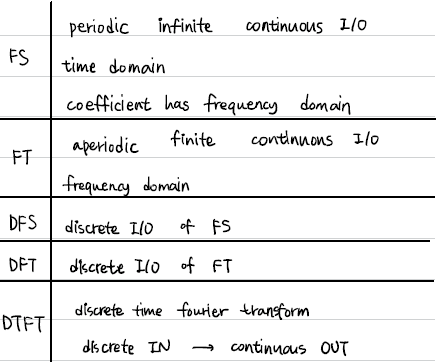 FS
periodic infinite continuous I/O
time domain
coefficient has frequency domain
FT
aperiodic finite continuous I/O
frequency domain
DFS discrete I/O of FS
DFT discrete I/O of FT
DTFT
discrete time fourier transform
discrete IN → continuous OUT